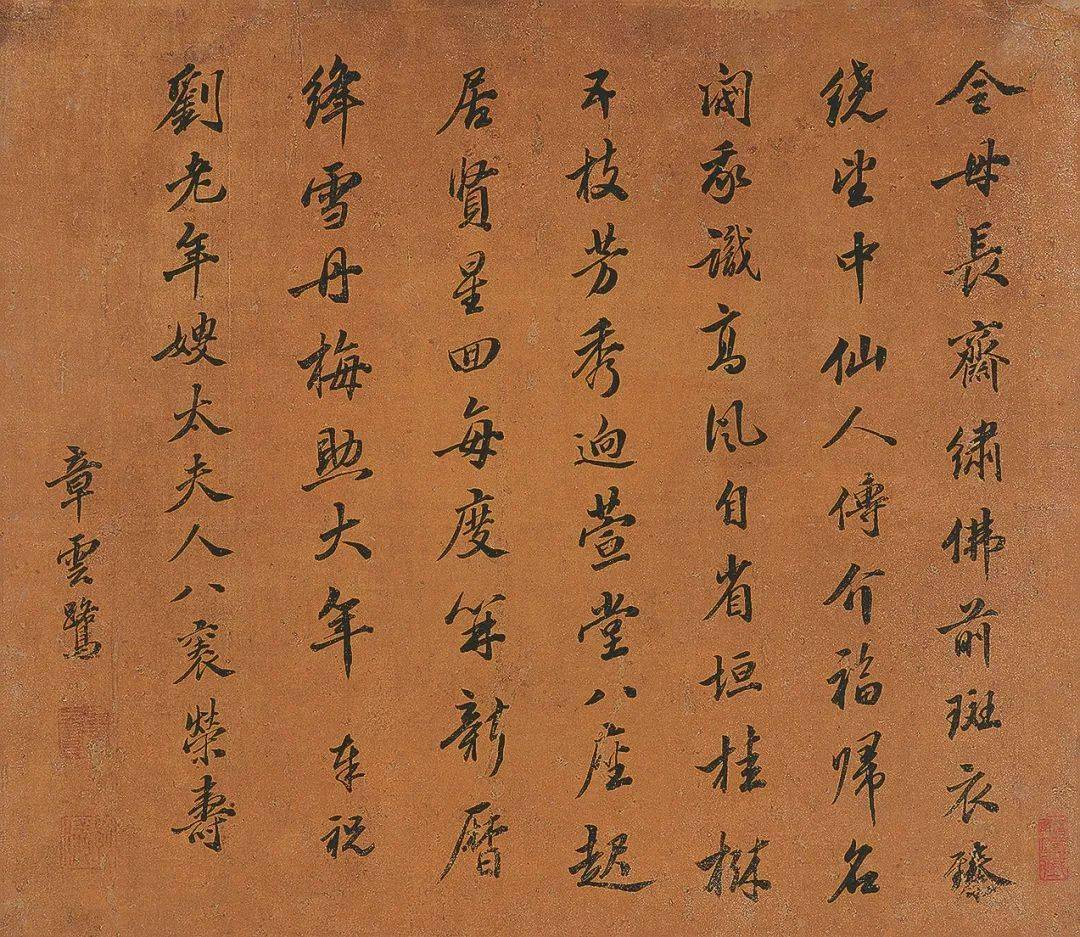 令母長齋繡佛前斑衣
繞坐中仙人傳介福歸名
閫我識高風自省垣桂
五枝芳秀迥萱堂八座起
居賢星回每度算新曆
絳雪丹梅助大年 奉祝
劉老年嫂太夫人八袠榮壽
章雲鷺